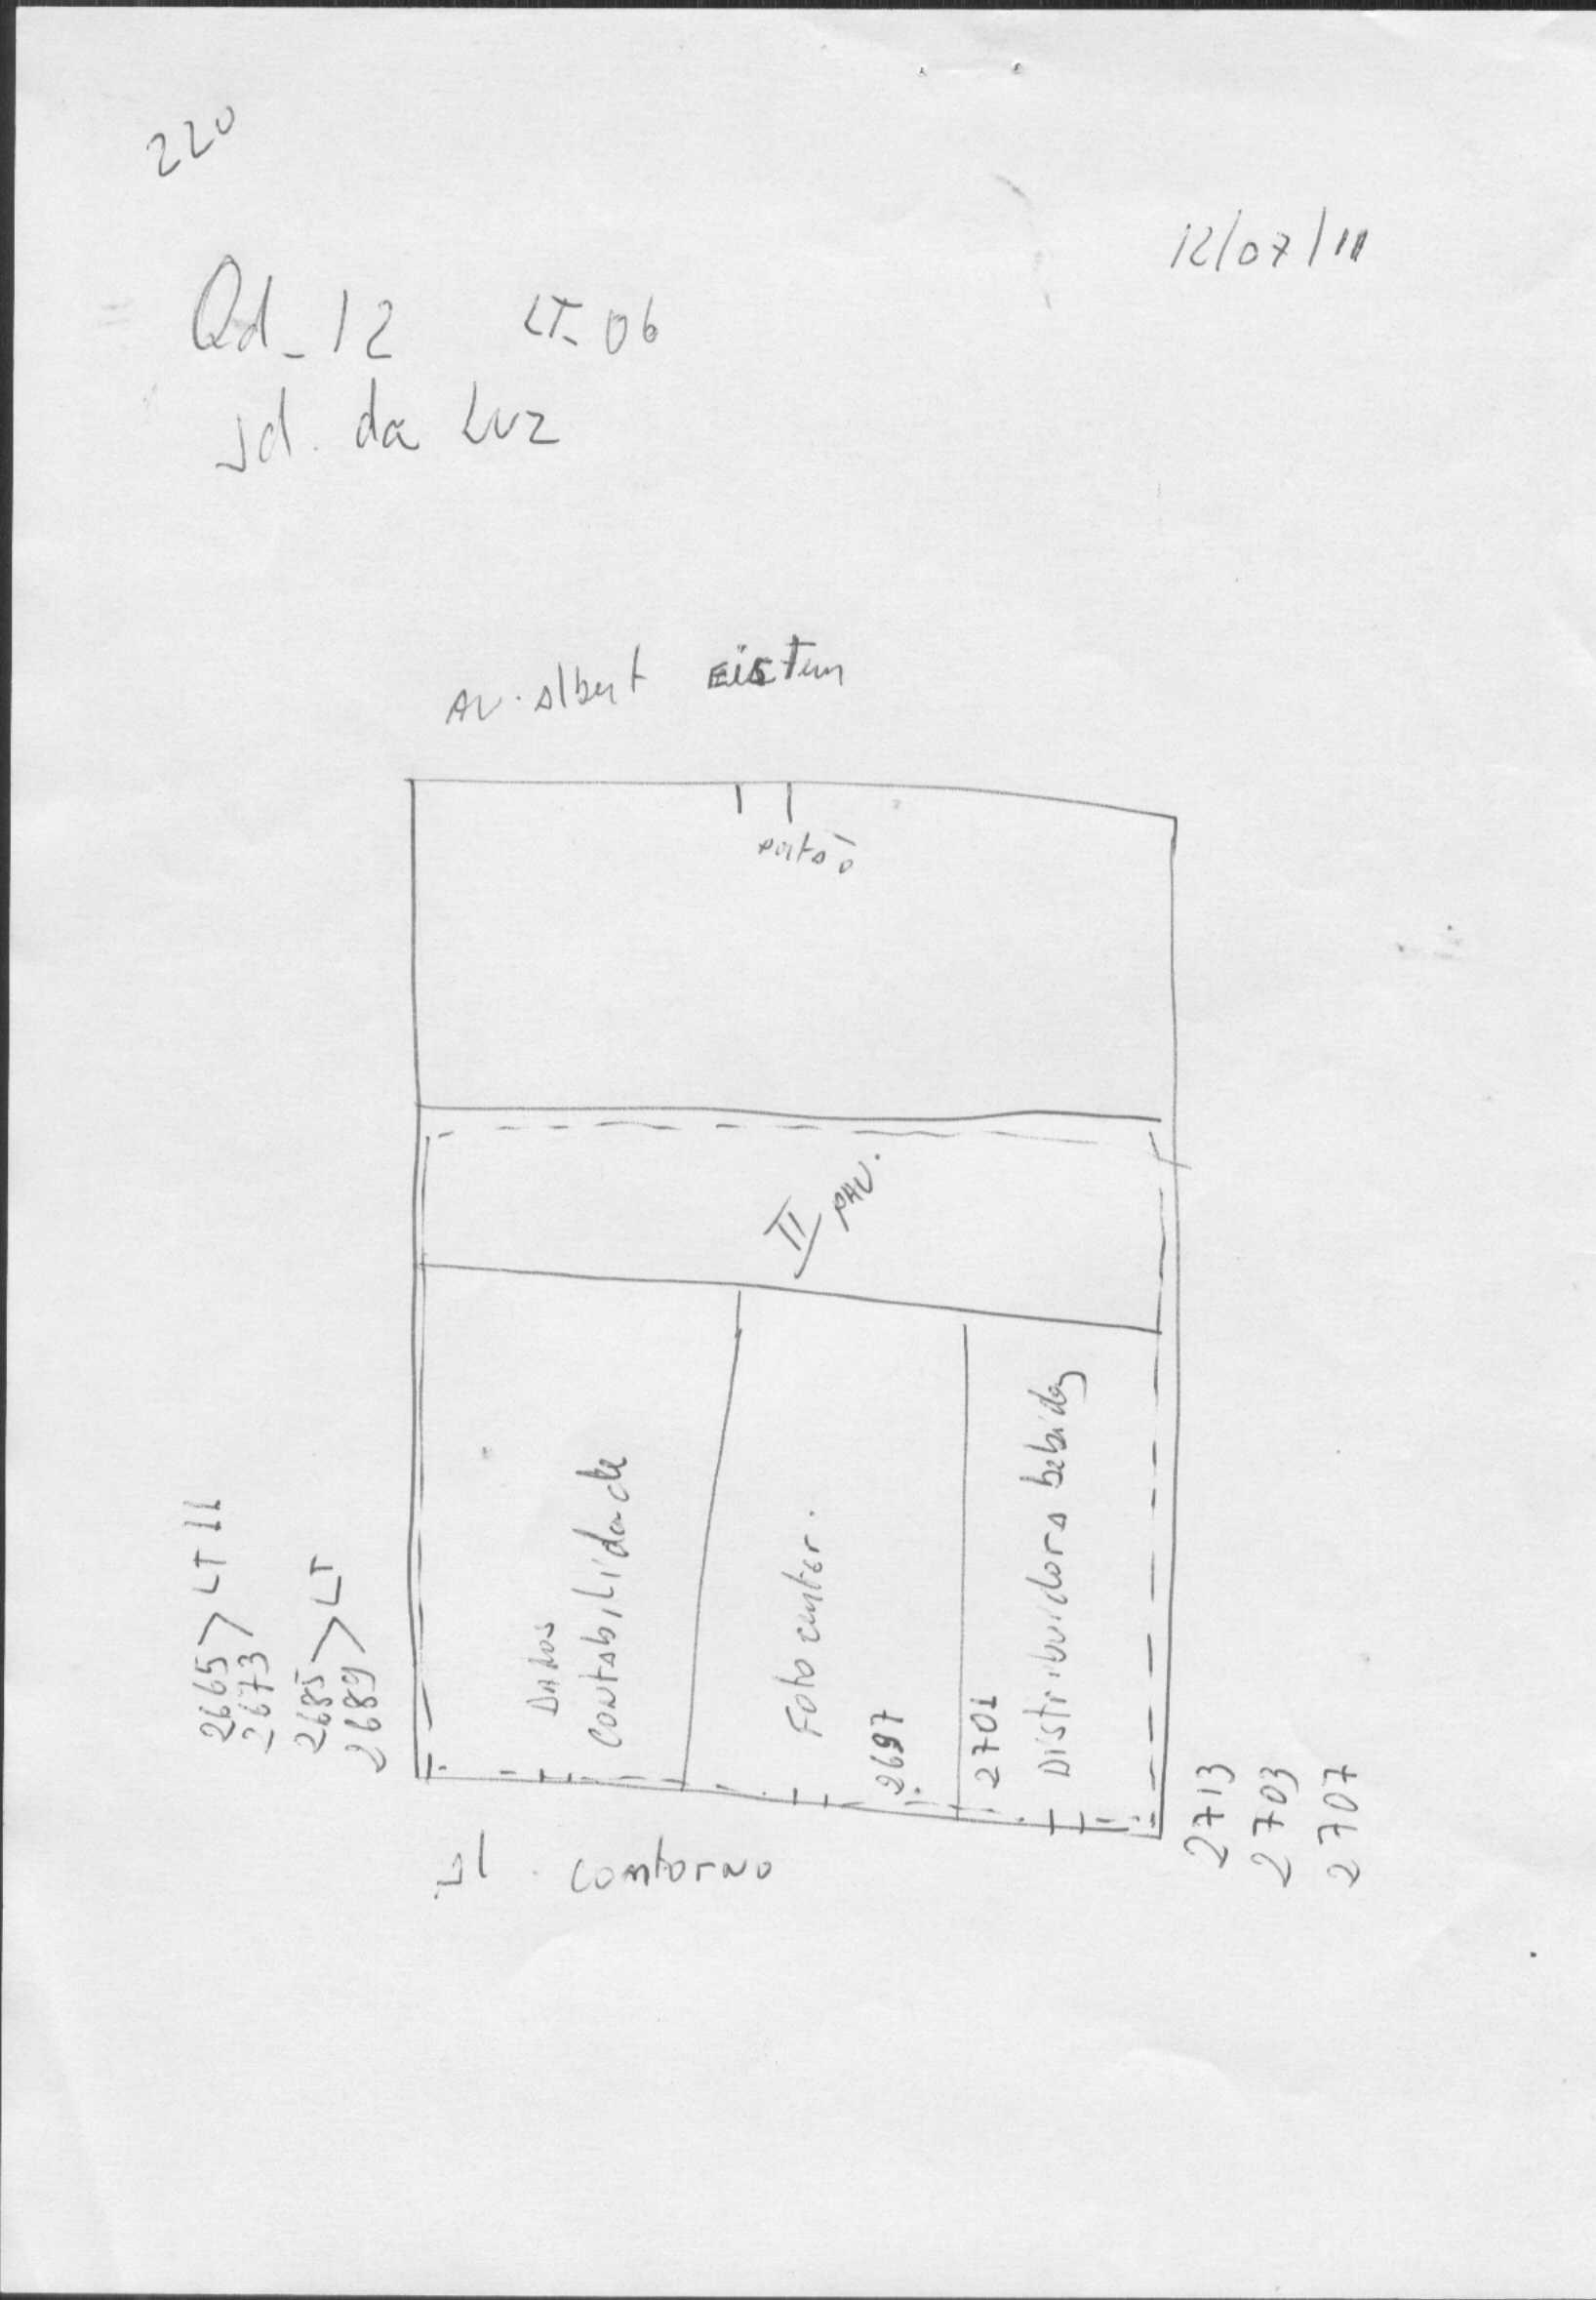 220
12/07/11
Qd-12 LT-06
Jd. da Luz
Av. Albert Eistein
portão
II PAV.
Dados
Contabilidade
Foto center.
2697
2701
Distribuidora bebidas
2665 > LT 11
2673
2685 > LT
2689
2713
2703
2707
contorno